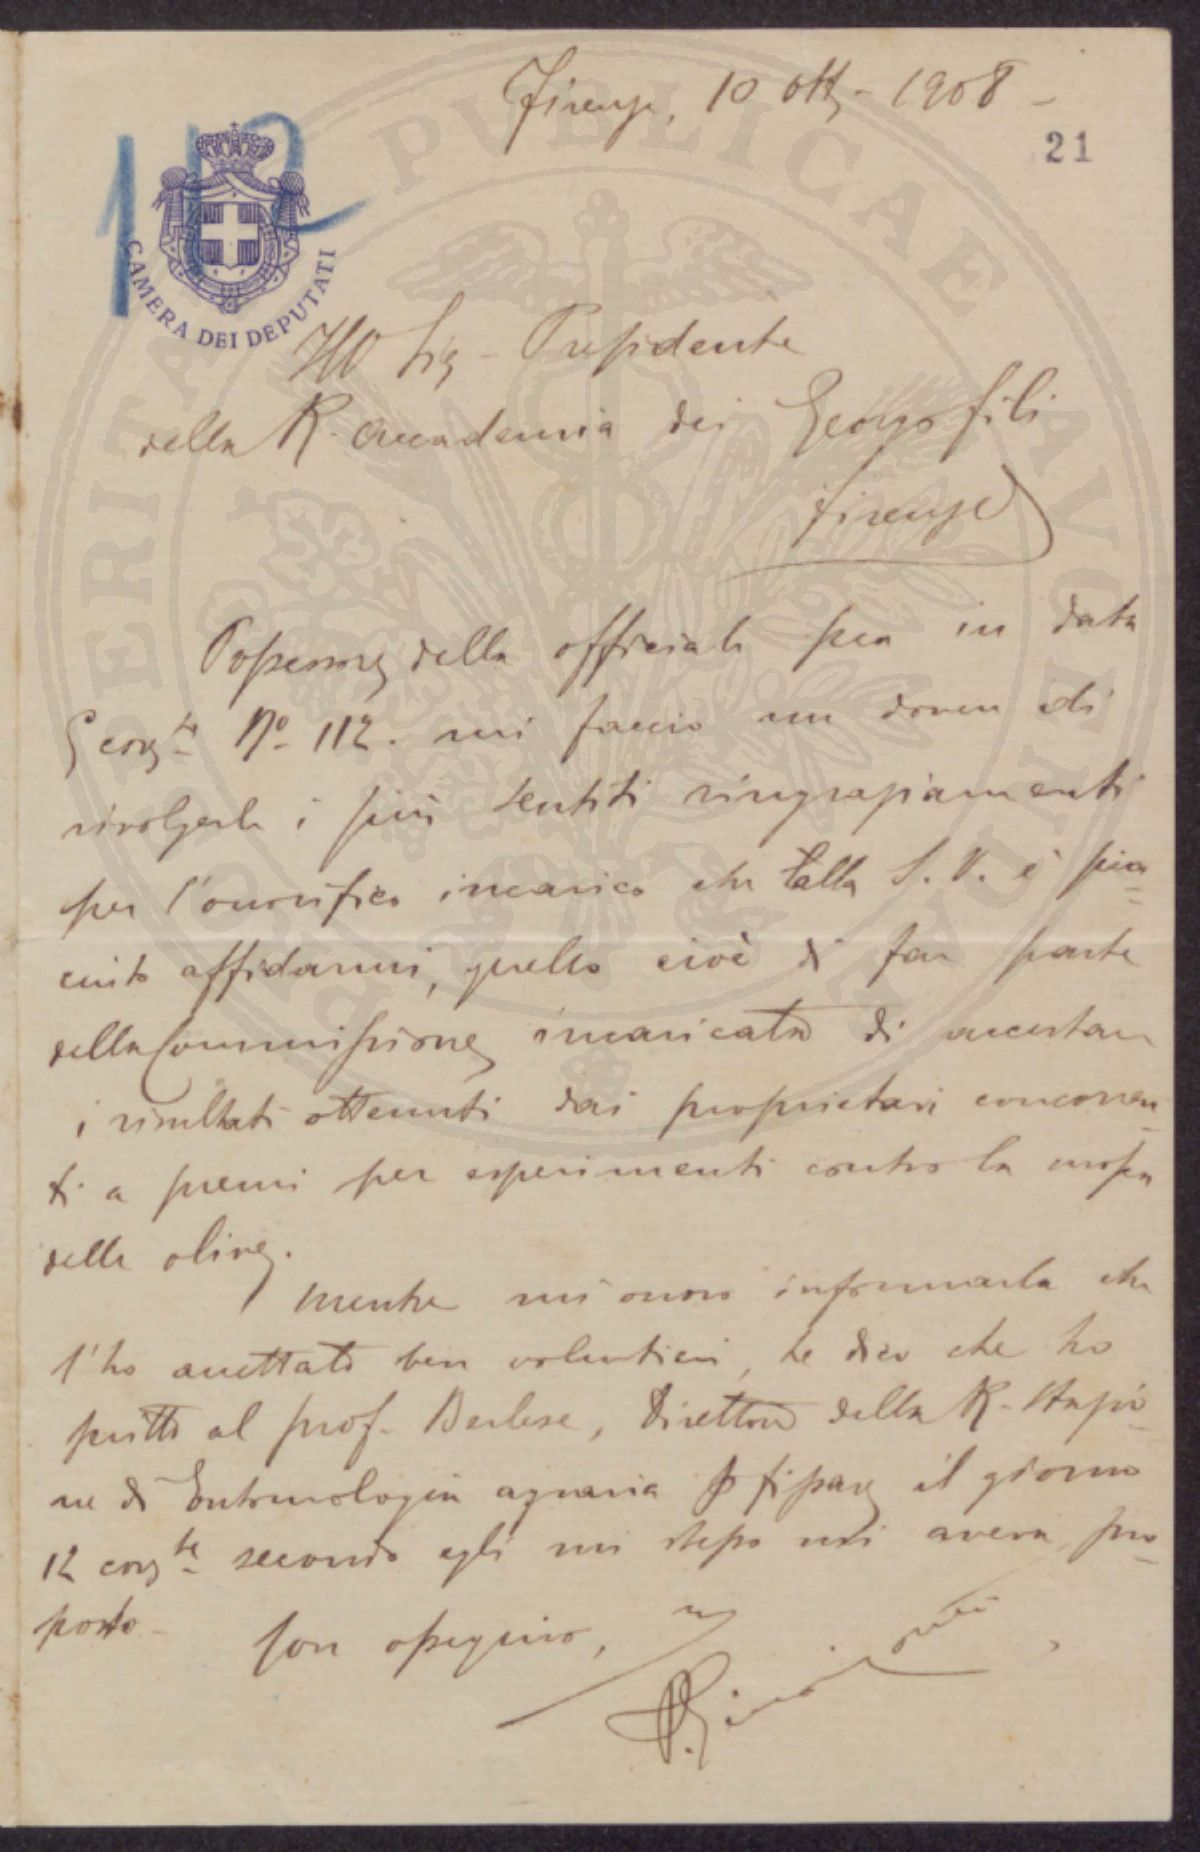 Firenze, 10 ott. - 1908 -
21
112
CAMERA DEI DEPUTATI
Ill.mo Sig. Presidente
della R. Accademia dei Georgofili
Firenze
Possessore della officiale sua in data
5 corr.te N.o 112. mi faccio un dovere di
rivolgerle i più sentiti ringraziamenti
per l'onorifico incarico che alla S. V. è pia-
ciuto affidarmi, quello cioè di far parte
della Commissione incaricata di accertare
i risultati ottenuti dai proprietari concorren-
ti a premi per esperimenti contro la mosca
delle olive.
Mentre mi onoro informarla che
l'ho accettato ben volentieri, le dico che ho
scritto al prof. Berlese, Direttore della R. Stazio-
ne di Entomologia agraria fissare il giorno
12 corr.te secondo egli mi stesso mi aveva pro-
posto.
Con ossequio,
PROSPERITATI PUBLICAE AUGENDAE